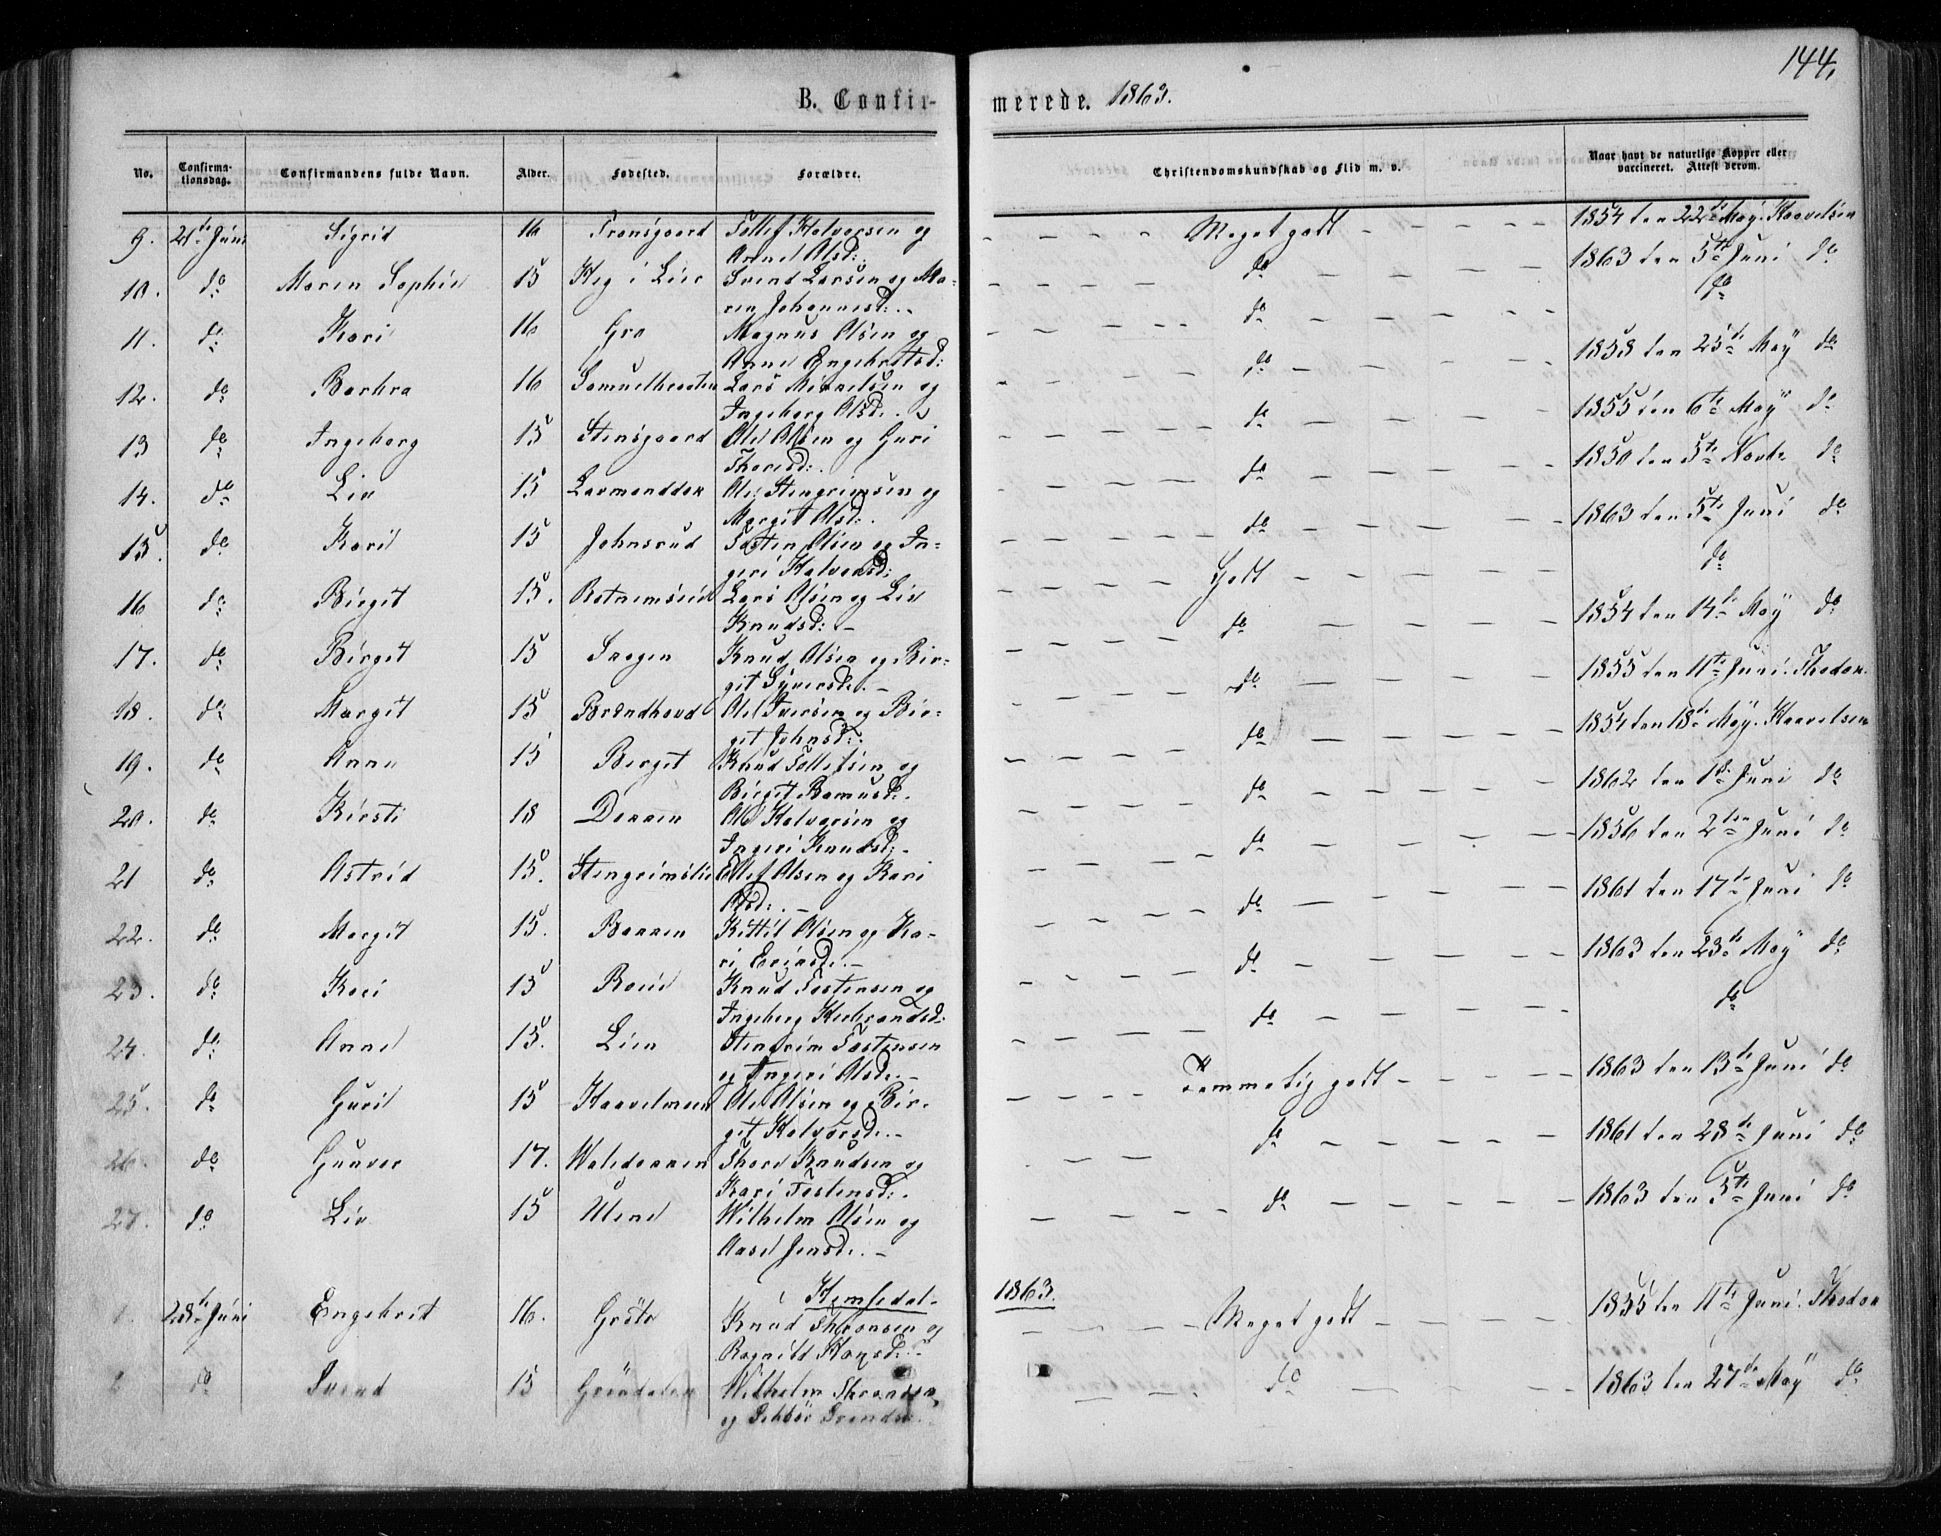 144.
B. Confirmerede. 1863.
No. Confirmationsdag. Confirmandens fulde Navn. Alder. Fødested. Forældre. Christendomskundskab og Flid m. v. Naar havt de naturlige Kopper eller vaccineret. Attest derom.
9. 21de Juni Sigrid 16 Tronsgaard Tollef Halvorsen og Meget godt 1854 den 22de May. Kaavelsen
Anne Olsd:
10. do Maren Sophie 15 Heg i Lier Svend Larsen og Ma- do 1863 den 5te Juni do
ren Johannesd:
11. do Kari 16 Gra Magnus Olsen og do do
Anne Engebretsd:
12. do Barbra 16 Lars Mikkelsen og do 1858 den 25de May do
Ingeborg Olsd:
13 do Ingeborg 15 Stensgaard Ole Olsen og Guri do 1855 den 6te May do
Thoresd:
14. do Liv 15 Ole Stengrimsen og do 1850 den 5te Novbr do
Margit Olsd:
15. do Kari 15 Johnsrud Tosten Olsen og In- do 1863 den 5te Juni do
geri Halvorsd:
16 do Birgit 15. Lars Olsen og Liv Godt do
Knudsd:
17. do Birgit 15 Knud Olsen og Bir- do 1854 den 14de May do
git Syversd:
18. do Margit 15 Brændhovd Ole Iversen og Bir- do 1855 den 11te Juni. Thodor
git Johnsd:
19. do Anne 15 Berget Knud Tollefsen og do 1854 den 18de May. Kaavelsen
Birgit
20. do Kirsti 18 Dokken Ole Halvorsen og do 1862 den 1ste Juni do
Ingeri Knudsd:
21 do Astrid 15. Stengrimslie Ellef Olsen og Kari do 1856 den 2den Juni do
Olsd:
22. do Margit 15. Bakken Kittil Olsen og Ka- do 1861 den 17de Juni do
ri Eriksd:
23. do Kari 15 Roiie Knud Tostensen og do 1863 den 23de May do
Ingeborg Herbrandsd:
24. do Anne 15. Lien Stengrim Tostensen do do
og Ingeri Olsd:
25. do Guri 15 Kaavelmoen Ole Olsen og Bir- Temmelig godt 1863 den 13de Juni do
git Halvorsd:
26. do Gunvor 17. Thore Knudsen og do 1861 den 28de Juni do
Kari Tostensd:
27. do Liv 15 Ulene Wilhelm Olsen og do 1863 den 5te Juni do
Aase Jensd:
Hemsedal 1863.
1. 28de Juni Engebret 16. Grøte Knud Thronsen og Meget godt 1855 den 11te Juni. Thodor
Ragnild Hansd:
2 do Svend 15 Grøndalen Wilhelm Throndsen do 1863 den 27de May do
og